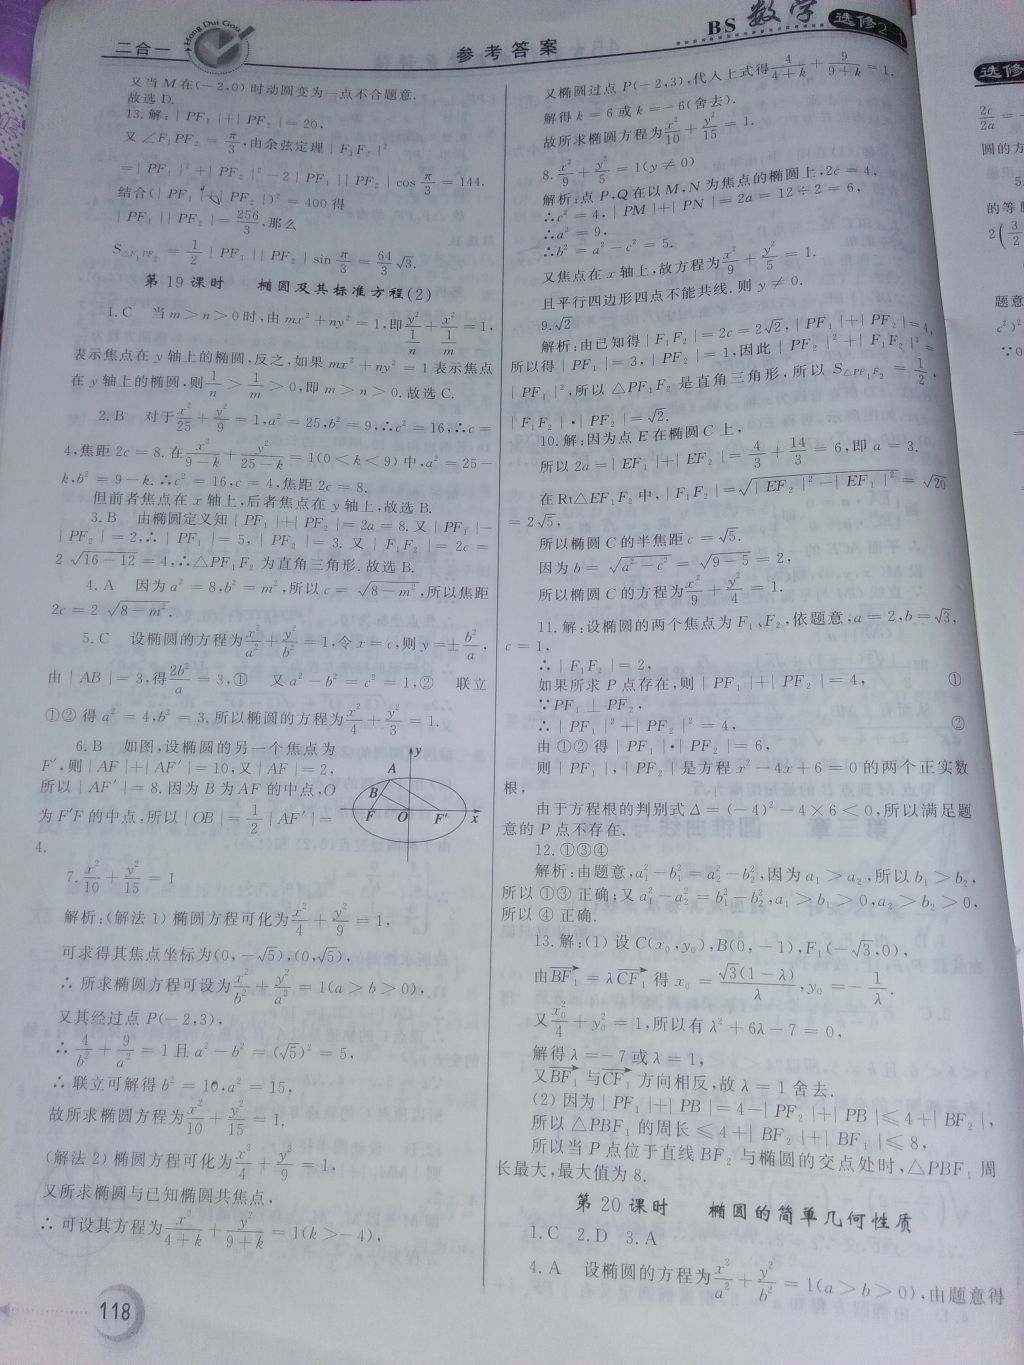 二合一
Hong Dui Gou
参考答案
BS 数学 选修2-1
又当 M 在(-2,0) 时动圆变为一点不合题意.
故选 D.
13.解:|PF₁|+|PF₂|=20,
又∠F₁PF₂=π/3,由余弦定理|F₁F₂|²
=|PF₁|²+|PF₂|²-2|PF₁||PF₂|cos π/3=144.
结合(|PF₁|+|PF₂|)²=400 得
|PF₁||PF₂|=256/3,那么
S△F₁PF₂=1/2|PF₁||PF₂|sin π/3=64/3 √3.
第 19 课时 椭圆及其标准方程(2)
1.C 当 m>n>0 时,由 mx²+ny²=1,即 y²/(1/n)+x²/(1/m)=1,
表示焦点在 y 轴上的椭圆,反之,如果 mx²+ny²=1 表示焦点
在 y 轴上的椭圆,则 1/n>1/m>0,即 m>n>0.故选 C.
2.B 对于 x²/25+y²/9=1,a²=25,b²=9,∴c²=16,∴c=
4,焦距 2c=8.在 x²/(9-k)+y²/(25-k)=1(0<k<9)中,a²=25-
k,b²=9-k.∴c²=16,c=4,焦距 2c=8.
但前者焦点在 x 轴上,后者焦点在 y 轴上,故选 B.
3.B 由椭圆定义知|PF₁|+|PF₂|=2a=8.又|PF₁|-
|PF₂|=2,∴|PF₁|=5,|PF₂|=3.又|F₁F₂|=2c=
2√(16-12)=4,∴△PF₁F₂ 为直角三角形.故选 B.
4.A 因为 a²=8,b²=m²,所以 c=√(8-m²),所以焦距
2c=2√(8-m²).
5.C 设椭圆的方程为 x²/a²+y²/b²=1,令 x=c,则 y=±b²/a,
由|AB|=3,得 2b²/a=3,① 又 a²-b²=c²=1,② 联立
①②得 a²=4,b²=3.所以椭圆的方程为 x²/4+y²/3=1.
6.B 如图,设椭圆的另一个焦点为
F′,则|AF|+|AF′|=10,又|AF|=2,
所以|AF′|=8.因为 B 为 AF 的中点,O
为 F′F 的中点,所以|OB|=1/2|AF′|=
4.
y
A
B
F O F′ x
7.x²/10+y²/15=1
解析:(解法 1)椭圆方程可化为 x²/4+y²/9=1,
可求得其焦点坐标为(0,-√5),(0,√5),
∴所求椭圆方程可设为 x²/b²+y²/a²=1(a>b>0),
又其经过点 P(-2,3),
∴4/b²+9/a²=1 且 a²-b²=(√5)²=5,
∴联立可解得 b²=10,a²=15,
故所求椭圆方程为 x²/10+y²/15=1.
(解法 2)椭圆方程可化为 x²/4+y²/9=1,
又所求椭圆与已知椭圆共焦点,
∴可设其方程为 x²/(4+k)+y²/(9+k)=1(k>-4),
118
又椭圆过点 P(-2,3),代入上式得 4/(4+k)+9/(9+k)=1.
解得 k=6 或 k=-6(舍去).
故所求椭圆方程为 x²/10+y²/15=1.
8.x²/9+y²/5=1(y≠0)
解析:点 P,Q 在以 M,N 为焦点的椭圆上,2c=4,
∴c²=4,|PM|+|PN|=2a=12÷2=6,
∴a²=9,
∴b²=a²-c²=5.
又焦点在 x 轴上,故方程为 x²/9+y²/5=1.
且平行四边形四点不能共线.则 y≠0.
9.√2
解析:由已知得|F₁F₂|=2c=2√2,|PF₁|+|PF₂|=4,
所以得|PF₁|=3,|PF₂|=1,因此|PF₂|²+|F₁F₂|²=
|PF₁|²,所以△PF₁F₂ 是直角三角形,所以 S△PF₁F₂=1/2·
|F₁F₂|·|PF₂|=√2.
10.解:因为点 E 在椭圆 C 上,
所以 2a=|EF₁|+|EF₂|=4/3+14/3=6,即 a=3.
在 Rt△EF₁F₂ 中,|F₁F₂|=√(|EF₂|²-|EF₁|²)=√20
=2√5,
所以椭圆 C 的半焦距 c=√5.
因为 b=√(a²-c²)=√(9-5)=2,
所以椭圆 C 的方程为 x²/9+y²/4=1.
11.解:设椭圆的两个焦点为 F₁、F₂,依题意,a=2,b=√3,
c=1,
∴|F₁F₂|=2,
如果所求 P 点存在,则|PF₁|+|PF₂|=4, ①
∵PF₁⊥PF₂,
∴|PF₁|²+|PF₂|²=4, ②
由①②得|PF₁|·|PF₂|=6,
则|PF₁|,|PF₂|是方程 x²-4x+6=0 的两个正实数
根,
由于方程根的判别式 Δ=(-4)²-4×6<0,所以满足题
意的 P 点不存在.
12.①③④
解析:由题意,a₁²-b₁²=a₂²-b₂²,因为 a₁>a₂,所以 b₁>b₂,
所以①③正确;又 a₁²-a₂²=b₁²-b₂²,a₁>b₁>0,a₂>b₂>0,
所以④正确.
13.解:(1)设 C(x₀,y₀),B(0,-1),F₁(-√3,0),
由 BF₁→=λCF₁→ 得 x₀=√3(1-λ)/λ,y₀=-1/λ.
又 x₀²/4+y₀²=1,所以有 λ²+6λ-7=0,
解得 λ=-7 或 λ=1,
又 BF₁→ 与 CF₁→ 方向相反,故 λ=1 舍去.
(2)因为|PF₁|+|PB|=4-|PF₂|+|PB|≤4+|BF₂|,
所以△PBF₁ 的周长≤4+|BF₂|+|BF₁|≤8,
所以当 P 点位于直线 BF₂ 与椭圆的交点处时,△PBF₁ 周
长最大,最大值为 8.
第 20 课时 椭圆的简单几何性质
1.C 2.D 3.A
4.A 设椭圆的方程为 x²/a²+y²/b²=1(a>b>0),由题意得
选修
2c/2a=
圆的方
5.
的等腰
题意